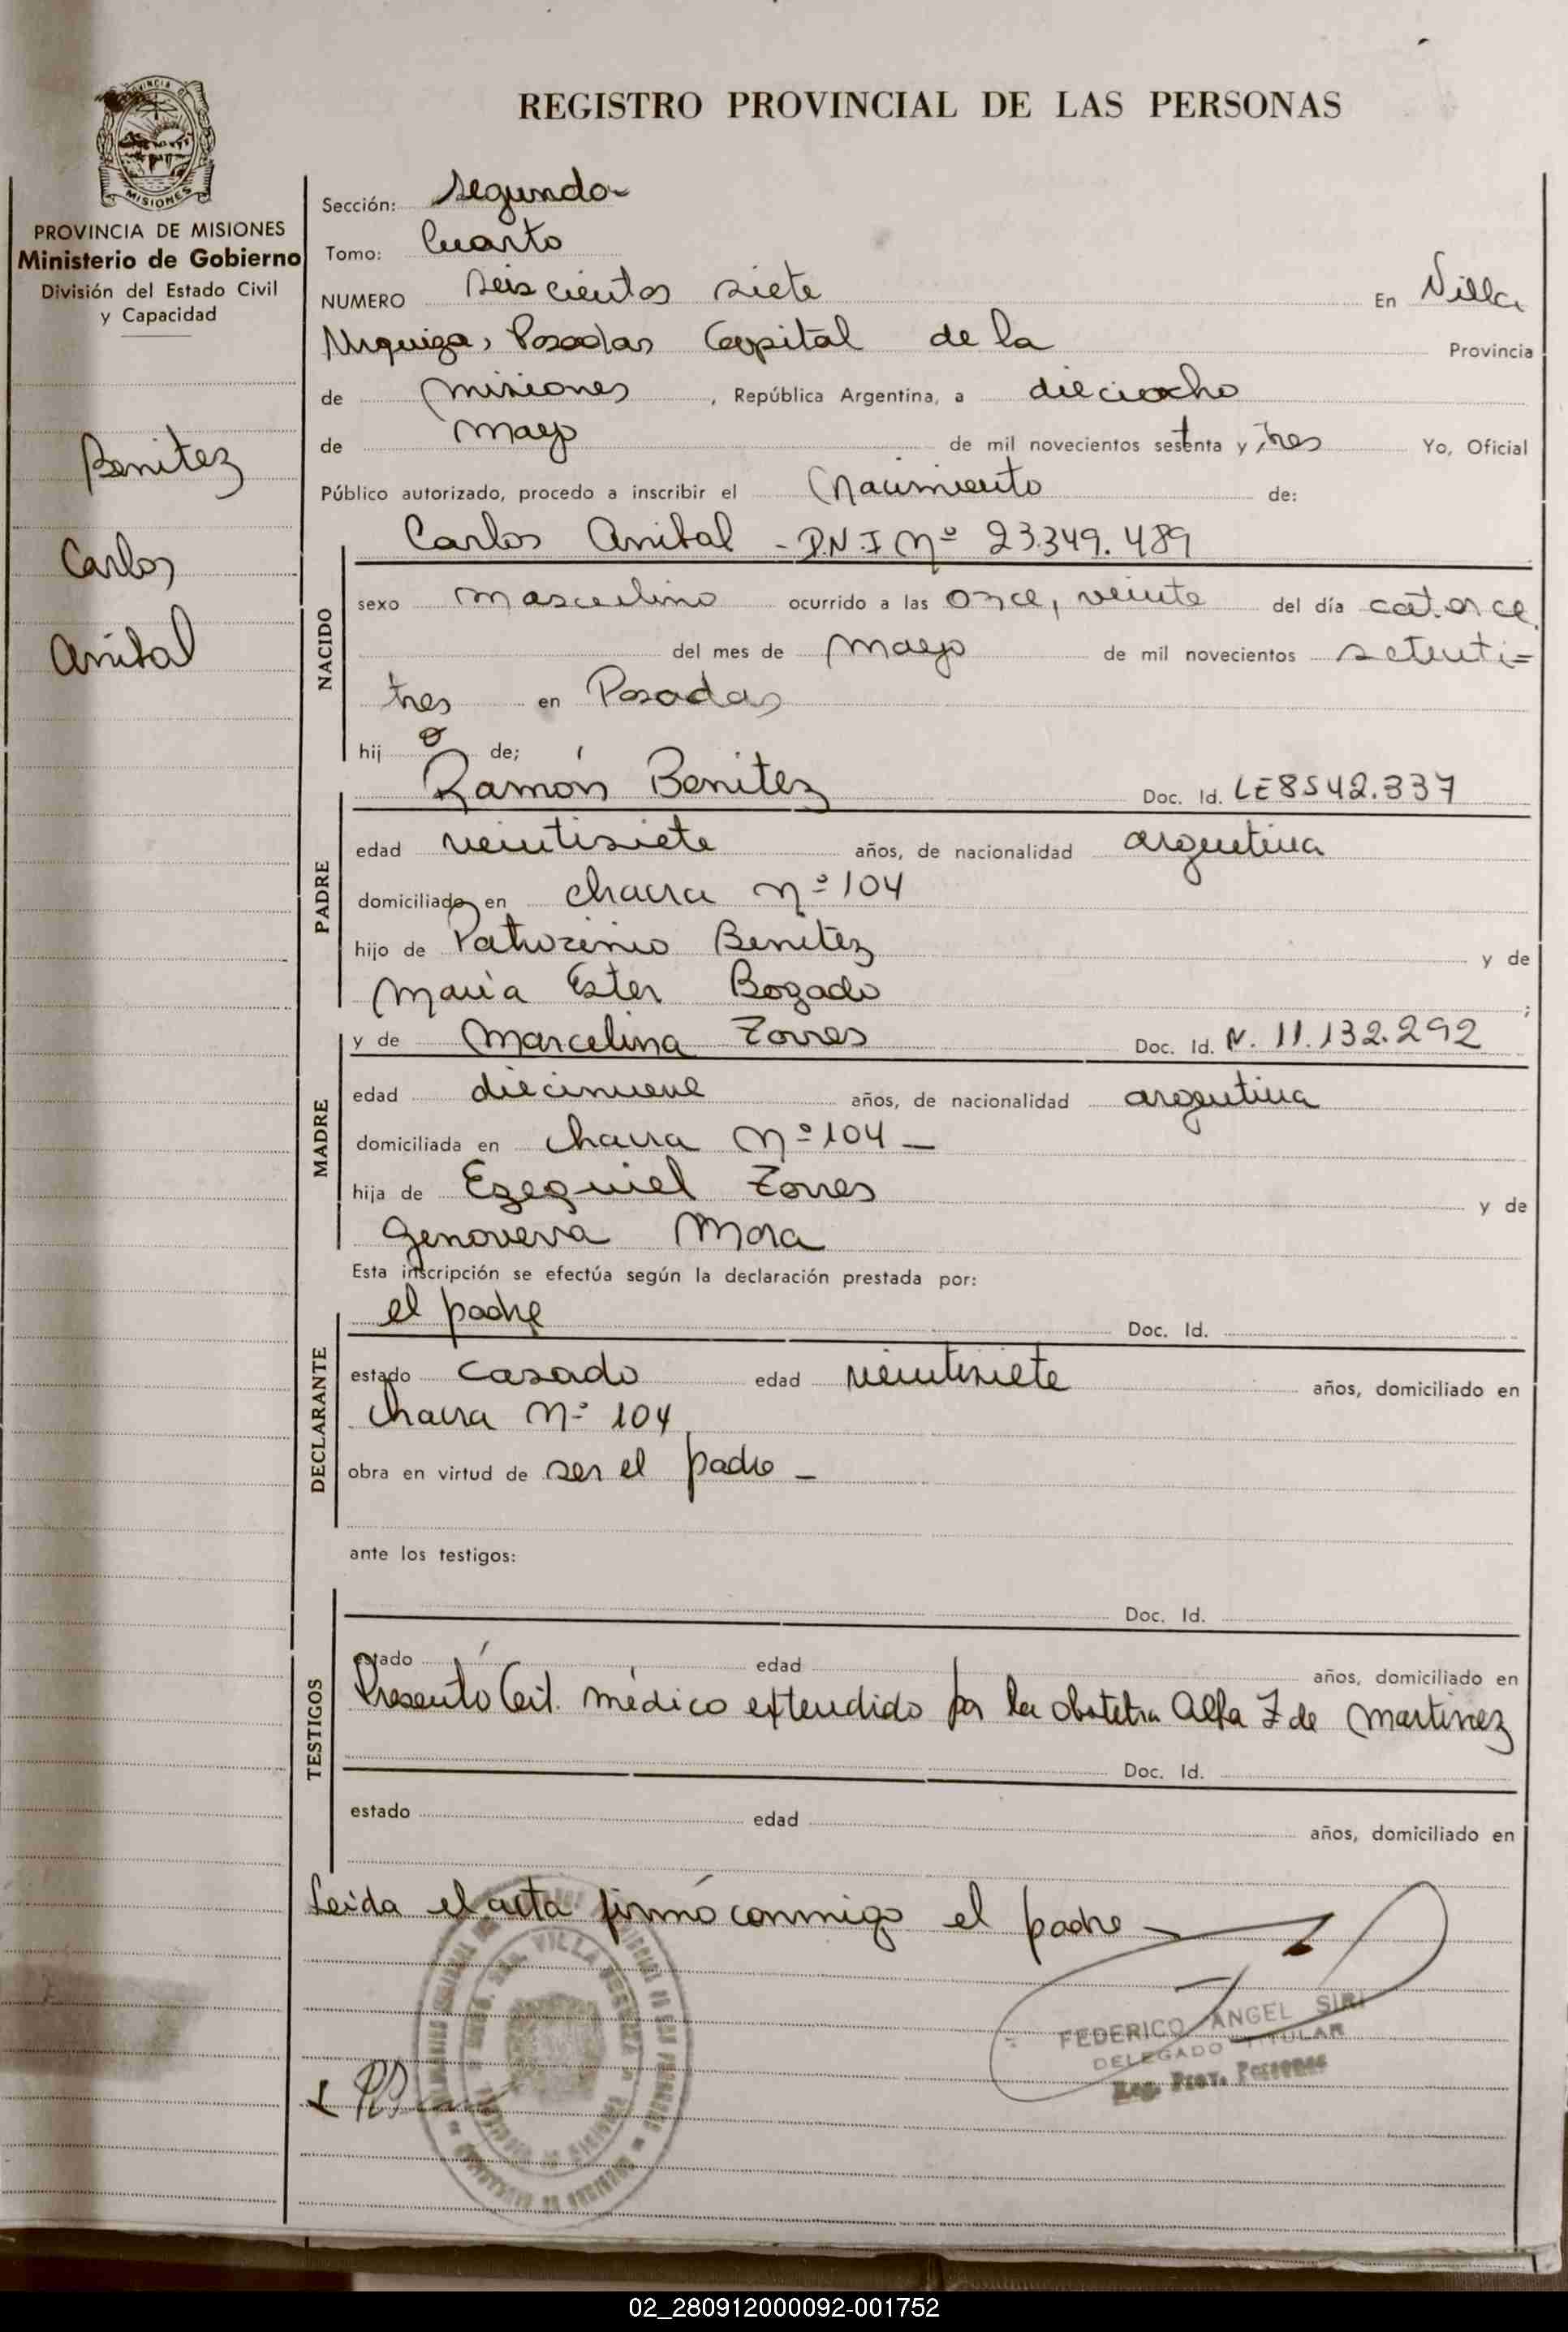 REGISTRO PROVINCIAL DE LAS PERSONAS
PROVINCIA DE
MISIONES
PROVINCIA DE MISIONES
Ministerio de Gobierno
División del Estado Civil
y Capacidad
Benitez
Carlos
Anibal
Sección: Segunda
Tomo: Cuarto
NUMERO Seiscientos siete En Villa
Urquiza, Posadas Capital de la Provincia
de Misiones, República Argentina, a dieciocho
de Mayo de mil novecientos setenta y tres Yo, Oficial
Público autorizado, procedo a inscribir el Nacimiento de:
Carlos Anibal - D.N.I Nº 23.349.489
NACIDO
sexo masculino ocurrido a las once, veinte del día catorce
del mes de Mayo de mil novecientos setenti=
tres en Posadas
hijo de;
Ramón Benitez Doc. Id. LE 8542.337
PADRE
edad veintisiete años, de nacionalidad argentina
domiciliado en chacra Nº 104
hijo de Patrocinio Benitez y de
María Ester Bogado ;
y de Marcelina Torres Doc. Id. N. 11.132.292
MADRE
edad diecinueve años, de nacionalidad argentina
domiciliada en chacra Nº 104 —
hija de Ezequiel Torres y de
Genoveva Mora
Esta inscripción se efectúa según la declaración prestada por:
el padre Doc. Id.
DECLARANTE
estado casado edad veintisiete años, domiciliado en
chacra Nº 104
obra en virtud de ser el padre —
ante los testigos:
Doc. Id.
TESTIGOS
estado edad años, domiciliado en
Presentó Cert. médico extendido por la obstetra Alfa Z de Martinez
Doc. Id.
estado edad años, domiciliado en
Leida el acta firmó conmigo el padre
FEDERICO ANGEL SIRI
DELEGADO TITULAR
Reg. Prov. Personas
VILLA
02_280912000092-001752